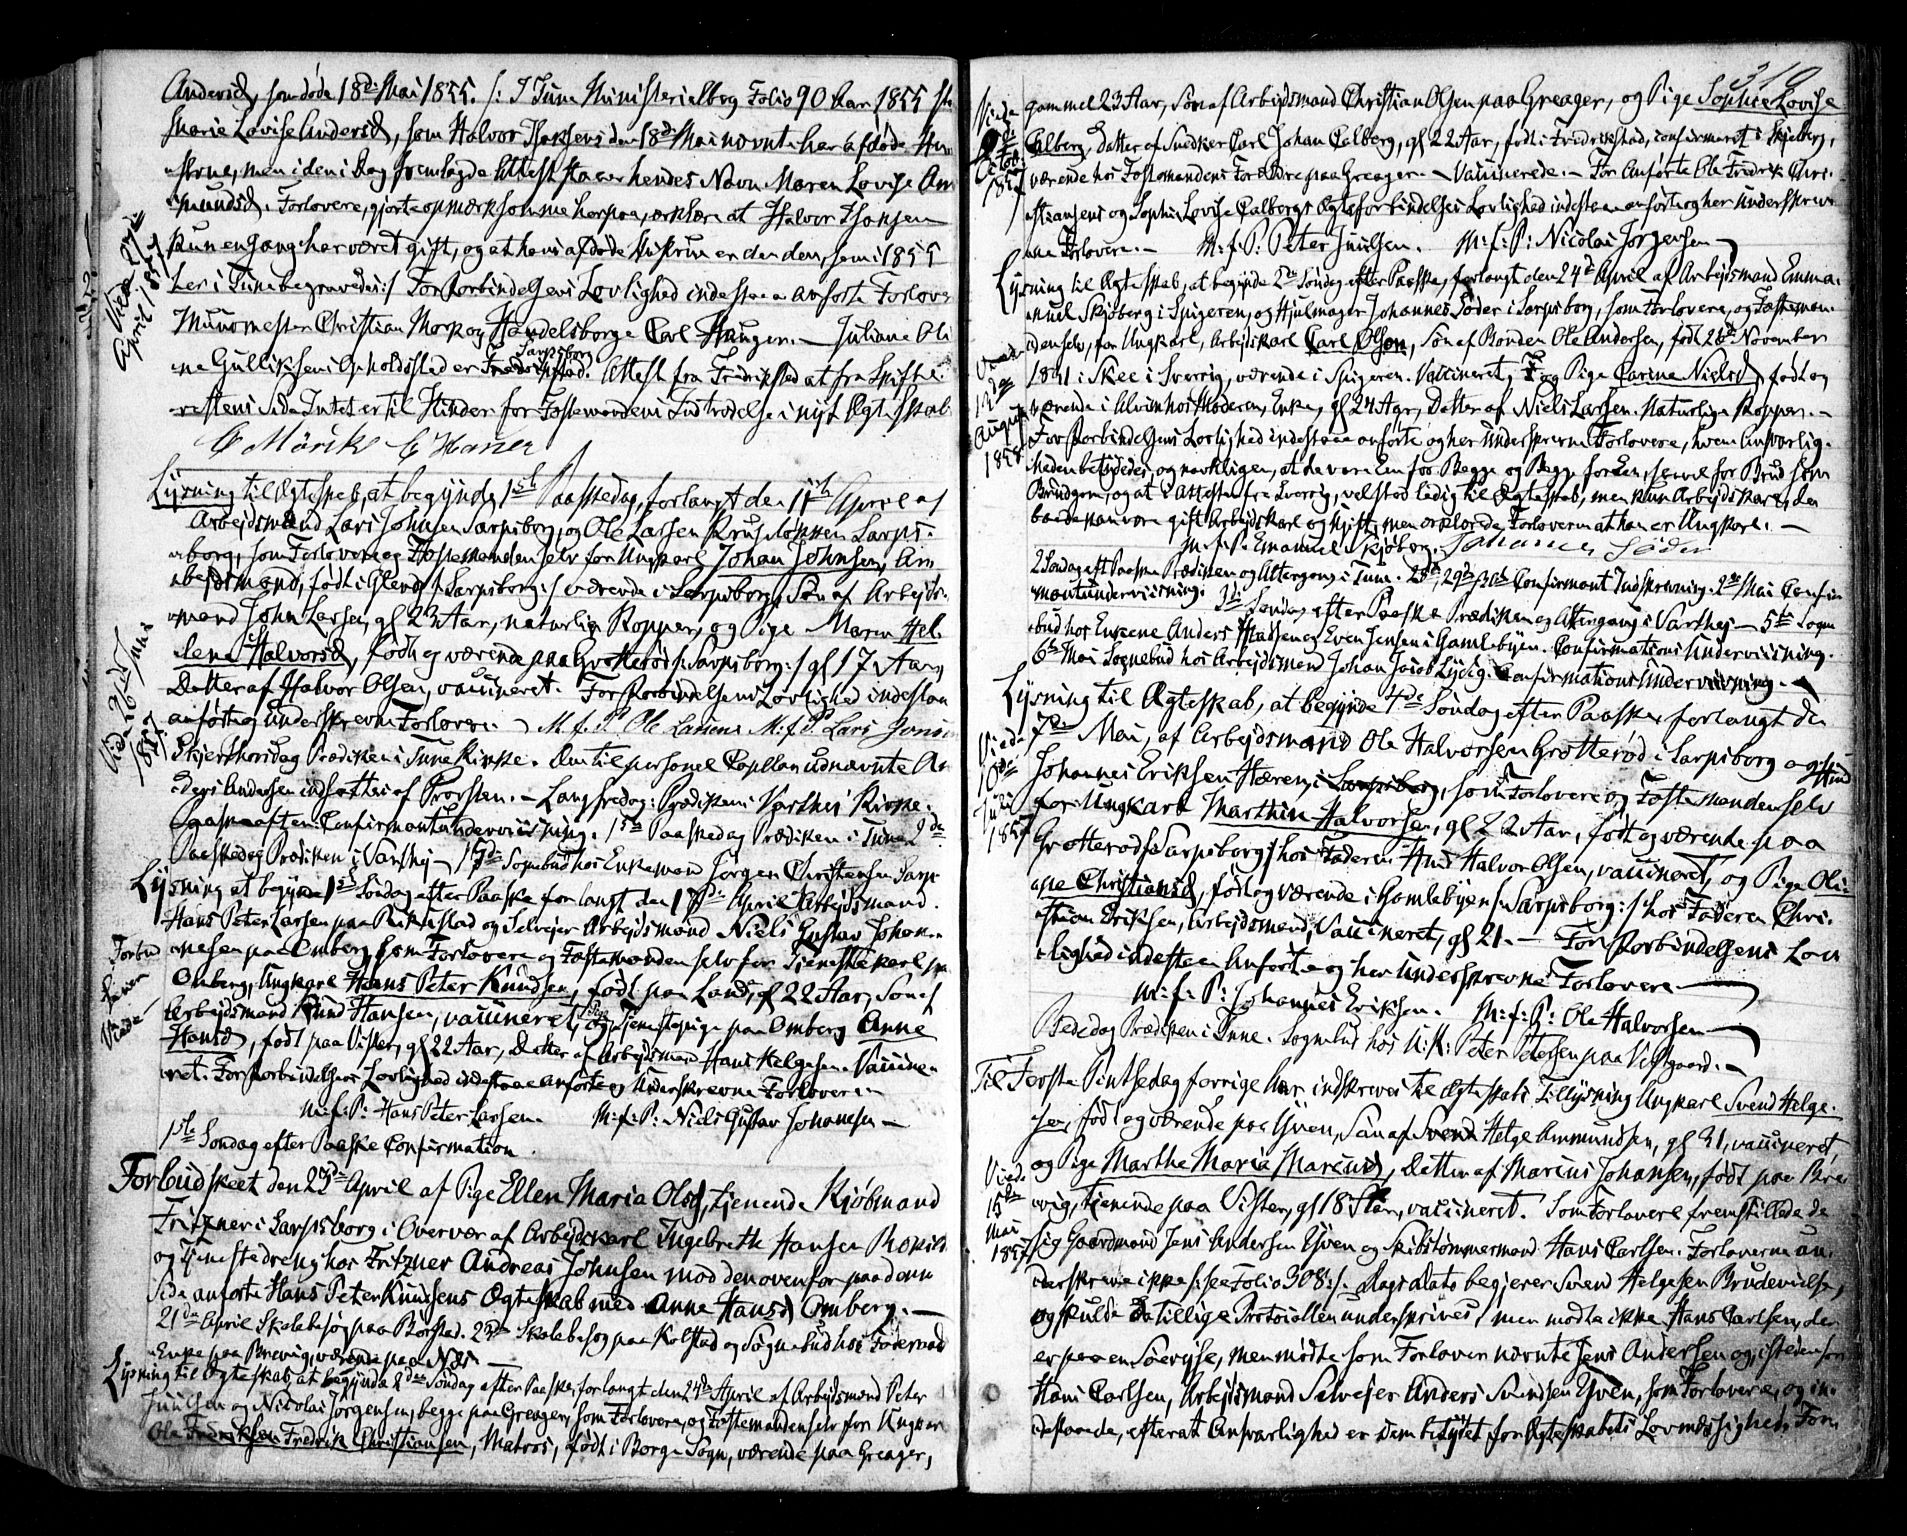 Andersd, som døde 18de Mai 1855. /: I Tune Ministerialbog Folio 90 kan 1855
Marie Lovise Andersd, som Halvor Isaksens den 18de Mai nævnte her afdøde
men i den i Dag fremlagde Attest staaer hendes Navn Maren Lovise Am
mundsd. Forlovere, gjorte opmærksomme herpaa, erklære at Halvor
kun engang har været gift, og at hans afdøde Hustrue er den, som i 1855
her i Tune begravedes :/ For Forbindelsens Lovlighed indestaae anførte Forlovere
Muurmester Christian Mork og Handelsborger Carl Haugen. — Juliane Oli
ne Gulliksens Opholdssted er Sarpsborg. Attest fra Fredrikstad at fra Skifte
rettens Side Intet er til Hinder for Fastemandens Indtrædelse i nyt Ægteskab
Viede 27de
April 1857
C Mörik C Hauer
Lysning til Ægteskab, at begynde 1ste Paaskedag, forlangt den 11te April af
Arbeidsmænd Lars Johnsen Sarpsborg, og Ole Larsen Kruseløkken Sarps-
borg, som Forlovere og Fastemanden selv for Ungkarl Johan Johnsen, Ar
beidsmand, født i Glemg /: Sarpsborg :/ værende i Sarpsborg, Søn af Arbeids-
mand John Larsen, gl 23 Aar, naturlige Kopper, og Pige Maren Hel
lene Halvorsd, født og værende paa Grotterød /: Sarpsborg :/ gl 17 Aar,
Datter af Halvor Olsen, vaccineret. For Forbindelsens Lovlighed indestaae
anførte og underskrevne Forlovere. M. f. P. Ole Larsens M. f. P. Lars
Viede 26de Juni
1857
Skjærthorsdag Prædiken i Tune Kirke. Den til personel Capellan udnævnte An
ders Andersen indsættes af Provsten. — Langfredag: Prædiken i Varteig Kirke.
Paaskeaften: Confirmantunderviisning. 1ste Paaskedag Prædiken i Tune, 2de
Paaskedag Prædiken i Varteig — 15de Sognebud hos Enkemand Jørgen Christensen Sarp
Lysning at begynde 1ste Søndag efter Paaske forlangt den 17de April Arbeidsmænd
Hans Peter Larsen paa Rikestad og Selveier Arbeidsmand Niels Gustav Johan
nesen paa Omberg, som Forlovere og Fastemanden selv for Tjenestekarl paa
Omberg, Ungkarl Hans Peter Knudsen, født paa Lande, gl 22 Aar, Søn af
Arbeidsmand Knud Hansen, vaccineret, og Tjenestepige paa Omberg Anne
Hansd, født paa Visten, gl 22 Aar, Datter af Arbeidsmand Hans Helgesen. Vaccine
ret. For Forbindelsens Lovlighed indestaae anførte og Underskrevne Forlovere
Forbud
Viede
m. f. P: Hans Peter Larsen. m. f. P: Niels Gustav Johansen —
1ste Søndag efter Paaske Confirmation.
Forbud skeet den 23de April af Pige Ellen Maria Olsd, tjenende Kjøbmand
Fritzner i Sarpsborg i Overvær af Arbeidskarl Ingebreth Hansen
og Tjenestedreng hos Fritzner Andreas Johnsen mod den ovenfor paa denne
Side anførte Hans Peter Knudsens Ægteskab med Anne Hansd Omberg. —
21de April Skolebesøg paa Borstad. 23de Skolebesøg paa Kolstad og Sognebud hos Føderaad
Enke paa Brevig, værende paa
Lysning til Ægteskab, at begynde 2den Søndag efter Paaske, forlangt den 24de April af Arbeidsmænd Peter
Juulsen og Nicolai Jørgensen, begge paa Greager, som Forlovere, og Fastemanden selv for Ungkarl
Ole Fredrik Christiansen, Matros, født i Borge Sogn, værende paa Greager,
310
gammel 23 Aar, Søn af Arbeidsmand Christian Olsen paa Greager, og Pige Sophie Lovise
Calberg, Datter af Snedker Carl Johan Calberg, gl 22 Aar, født i Fredrikstad, confirmeret i Skjeberg,
værende hos Fastemandens Forældre paa Greager. — Vaccinerede. — For Anførte Ole Fredrik Chri-
stiansens og Sophie Lovise Calbergs Ægteforbindelses Lovlighed indestaae anførte og her Underskrev
ne Forlovere. — M. f. P: Peter Juulsen. M. f. P: Nicolai Jørgensen
Viede
1857
Lysning til Ægteskab, at begynde 2den Søndag efter Paaske, forlangt den 24de April af Arbeidsmand Emma-
nuel Skjøberg i Spigeren, og Hjulmager Johannes Søder i Sarpsborg, som Forlovere, og Fasteman-
den selv, for Ungkarl, Arbeidskarl Carl Olsson, Søn af Bonden Ole Andersen, født 26de November
1831 i Skee i Sverrig, værende i Spigeren. Vaccineret, og Pige Carine Nielsd, født og
værende i Alvim hos Moderen, Enke, gl 24 Aar, Datter af Niels Larsen. Naturlige Kopper. —
For Forbindelsens Lovlighed indestaae anførte og her Underskrevne Forlovere, hvem Ansvarlig-
heden betydedes, og navnligen, at de vare Een for Begge og Begge for Een, saavel for Brud som
Brudgom, og at i Attesten fra Sverrig, vel stod ledig til Ægteskab, men kun Arbeidskarl, der
baade kan være gift Arbeidskarl og ugift, men erklærede Forloverne at han er Ungkarl. —
Viede
12de
August
1858
M. f. P. Emanuel Skjöberg. Johannes Söder
2 Søndag eft Paaske Prædiken og Altergang i Tune. 28de, 29de, 30te Confirmant Indskrivning. 2den Mai Confir
mantunderviisning. 3die Søndag efter Paaske Prædiken og Altergang i Varteig — 5te Sogne
bud hos Enkene Anders Madsen og Even Jensen i Gamlebyen. Confirmations Underviisning.
6te Mai Sognebud hos Arbeidsmand Johan Jacob Lysig. Confirmations Underviisning. —
Lysning til Ægteskab, at begynde 4de Søndag efter Paaske, forlangt den
7de Mai, af Arbeidsmænd Ole Halvorsen Grotterød i Sarpsborg og
Johannes Eriksen Hæren, i Sarpsborg, som Forlovere og Fastemanden selv
for Ungkarl Marthin Halvorsen, gl 22 Aar, født og værende paa
Grotterød /: Sarpsborg :/ hos Faderen Halvor Olsen, vaccineret, og Pige Oli-
ane Christiansd, født og værende i Gamlebyen /: Sarpsborg :/ hos Faderen Chri-
stian Eriksen, Arbeidsmand, Vaccineret, gl 21. — For Forbindelsens Lov
lighed indestaae Anførte og her Underskrevne Forlovere
Viede
10de
Juli
1857
M. f. P: Johannes Eriksen. M. f. P: Ole Halvorsen
Bededag Prædiken i Tune. Sognebud hos Peter Petersen paa Vestgaard. —
Til Første Pintsedag forrige Aar indskreves til Ægteskabs Tillysning Ungkarl Svend Helge-
sen, født og værende paa Yven, Søn af Helge Ammundsen, gl 31, vaccineret,
og Pige Marthe Maria Marcusd, Datter af Marcus Johansen, født paa Bre
vig, tjenende paa Visten, gl 18 Aar, vaccineret. Som Forlovere fremstillede de
sig Gaardmand Jens Andersen Yven og Skibstømmermand Hans Carlsen. Forloverne un-
derskreve ikke /: see Folio 308 :/. Dags Dato begjerer Svend Helgesen Brudevielse,
og skulde da tillige Protocollen underskrives, men mødte ikke Hans Carlsen, der
er paa en Søereise, men mødte som Forlovere nævnte Jens Andersen og, istedenfor
Hans Carlsen, Arbeidsmand Selveier Anders Svendsen Yven, som Forlovere, og in-
destaaede, efterat Ansvarlighed er dem betydet for Ægteskabets Lovmæssighed. For
Viede
15de
Mai
1857